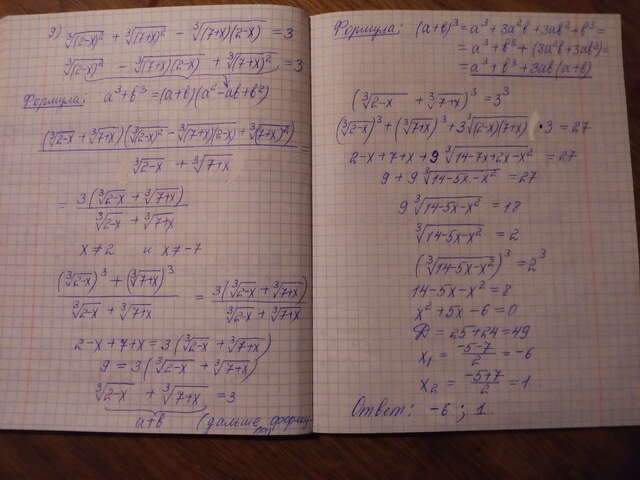 9) ∛(2-x)² + ∛(7+x)² - ∛(7+x)(2-x) = 3
∛(2-x)² - ∛(7+x)(2-x) + ∛(7+x)² = 3
Формула: a³+b³ = (a+b)(a²-ab+b²)
(∛2-x + ∛7+x)(∛(2-x)² - ∛(7+x)(2-x) + ∛(7+x)²) =
∛2-x + ∛7+x
= 3(∛2-x + ∛7+x)
∛2-x + ∛7+x
x≠2 и x≠-7
(∛2-x)³ + (∛7+x)³ = 3(∛2-x + ∛7+x)
∛2-x + ∛7+x ∛2-x + ∛7+x
2-x+7+x = 3(∛2-x + ∛7+x)
9 = 3(∛2-x + ∛7+x)
∛2-x + ∛7+x = 3
a+b (дальше
Формула: (a+b)³ = a³+3a²b+3ab²+b³ =
= a³+b³+(3a²b+3ab²) =
= a³+b³+3ab(a+b)
(∛2-x + ∛7+x)³ = 3³
(∛2-x)³ + (∛7+x)³ + 3∛(2-x)(7+x) ·3 = 27
2-x+7+x+9∛14-7x+2x-x² = 27
9+9∛14-5x-x² = 27
9∛14-5x-x² = 18
∛14-5x-x² = 2
(∛14-5x-x²)³ = 2³
14-5x-x² = 8
x²+5x-6=0
D = 25+24=49
x₁ = -5-7/2 = -6
x₂ = -5+7/2 = 1
Ответ: -6; 1.